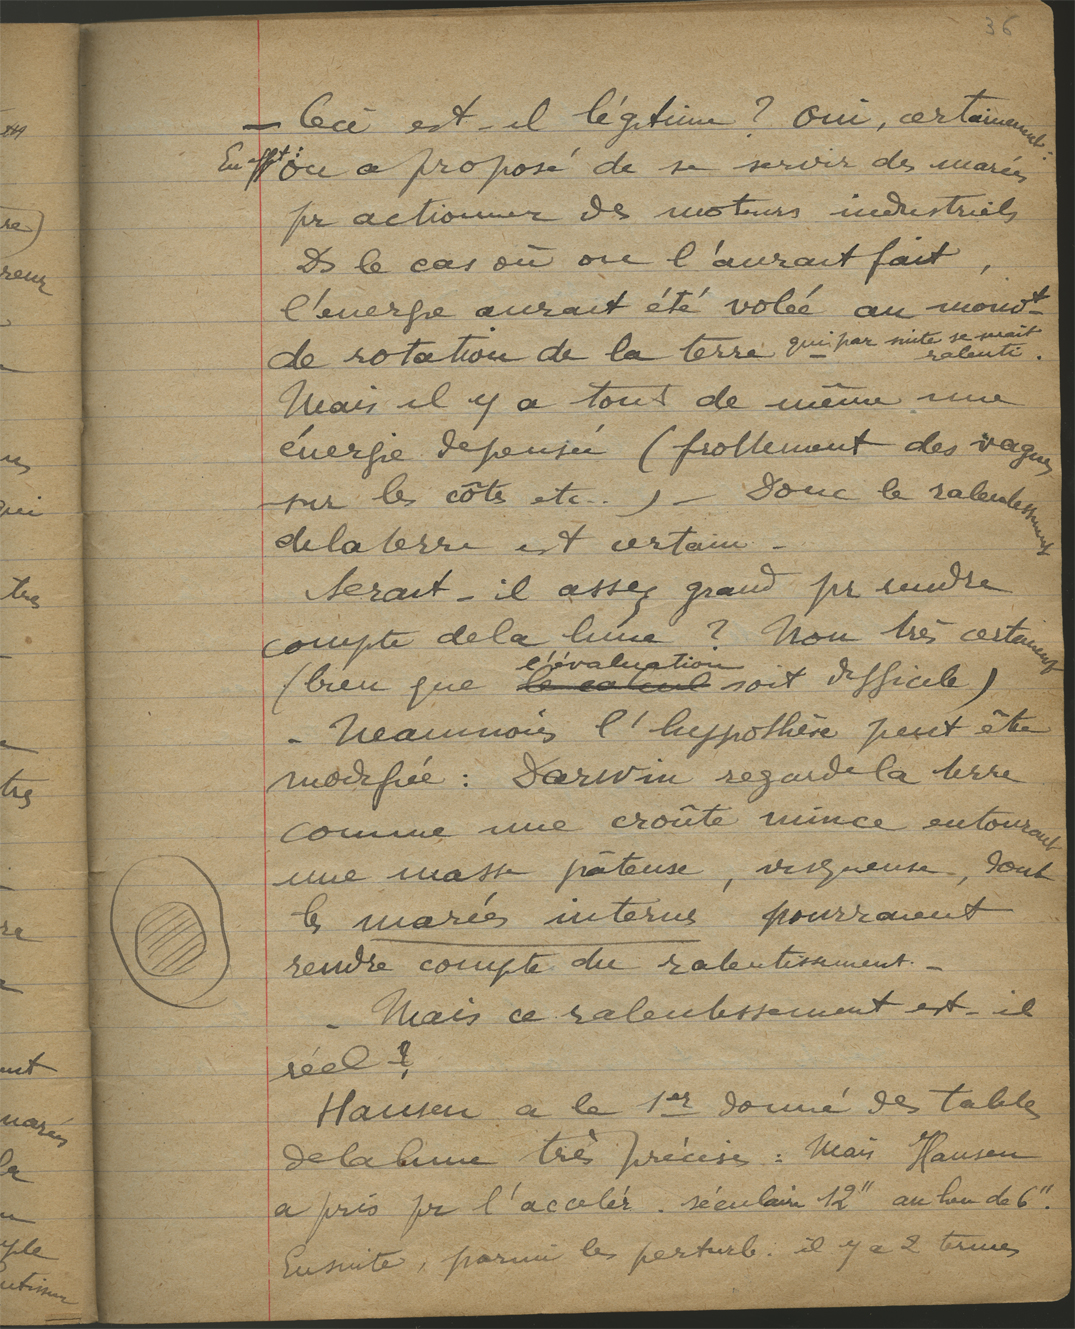 36
— Ceci est-il légitime ? Oui, certainement :
En efft : on a proposé de se servir des marées
pr actionner des moteurs industriels
Ds le cas où on l'aurait fait,
l'énergie aurait été volée au mouvt
de rotation de la terre qui par suite se serait
ralenti.
Mais il y a tout de même une
énergie dépensée (frottement des vagues
sur les côtes etc..) — Donc le ralentissement
de la terre est certain -
Serait-il assez grand pr rendre
compte de la lune ? Non très certainemt
l'évaluation
(bien que le calcul soit difficile)
- Neanmoins l'hypothèse peut être
modifiée : Darwin regarde la terre
comme une croûte mince entourant
une masse pâteuse, visqueuse, dont
les marées internes pourraient
rendre compte du ralentissement. -
- Mais ce ralentissement est-il
réel ?
Hansen a le 1er donné des tables
de la lune très précises : Mais Hansen
a pris pr l'accélér. séculaire 12" au lieu de 6".
Ensuite, parmi les perturb. il y a 2 termes